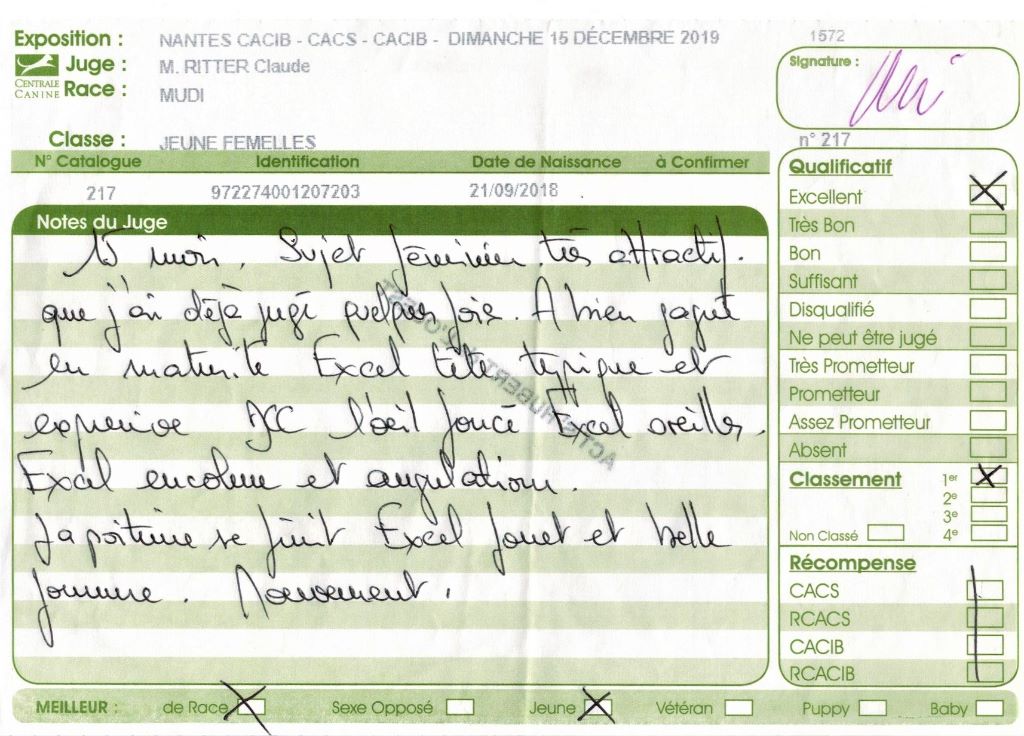 Exposition : NANTES CACIB - CACS - CACIB - DIMANCHE 15 DÉCEMBRE 2019 1572
CENTRALE CANINE
Juge : M. RITTER Claude
Race : MUDI
Signature :
Classe : JEUNE FEMELLES
n° 217
N° Catalogue Identification Date de Naissance à Confirmer
217 972274001207203 21/09/2018
Notes du Juge
15 mois, Sujet féminin très attractif.
que j'ai déjà jugé quelques fois. A bien gagné
en maturité Excel tête typique et
expressive JCC l'oeil foncé Excel oreilles.
Excel encolure et angulations.
La poitrine se finit Excel fouet et belle
fourrure. Mouvement.
Qualificatif
Excellent
Très Bon
Bon
Suffisant
Disqualifié
Ne peut être jugé
Très Prometteur
Prometteur
Assez Prometteur
Absent
Classement 1er
2e
3e
Non Classé 4e
Récompense
CACS
RCACS
CACIB
RCACIB
MEILLEUR : de Race Sexe Opposé Jeune Vétéran Puppy Baby